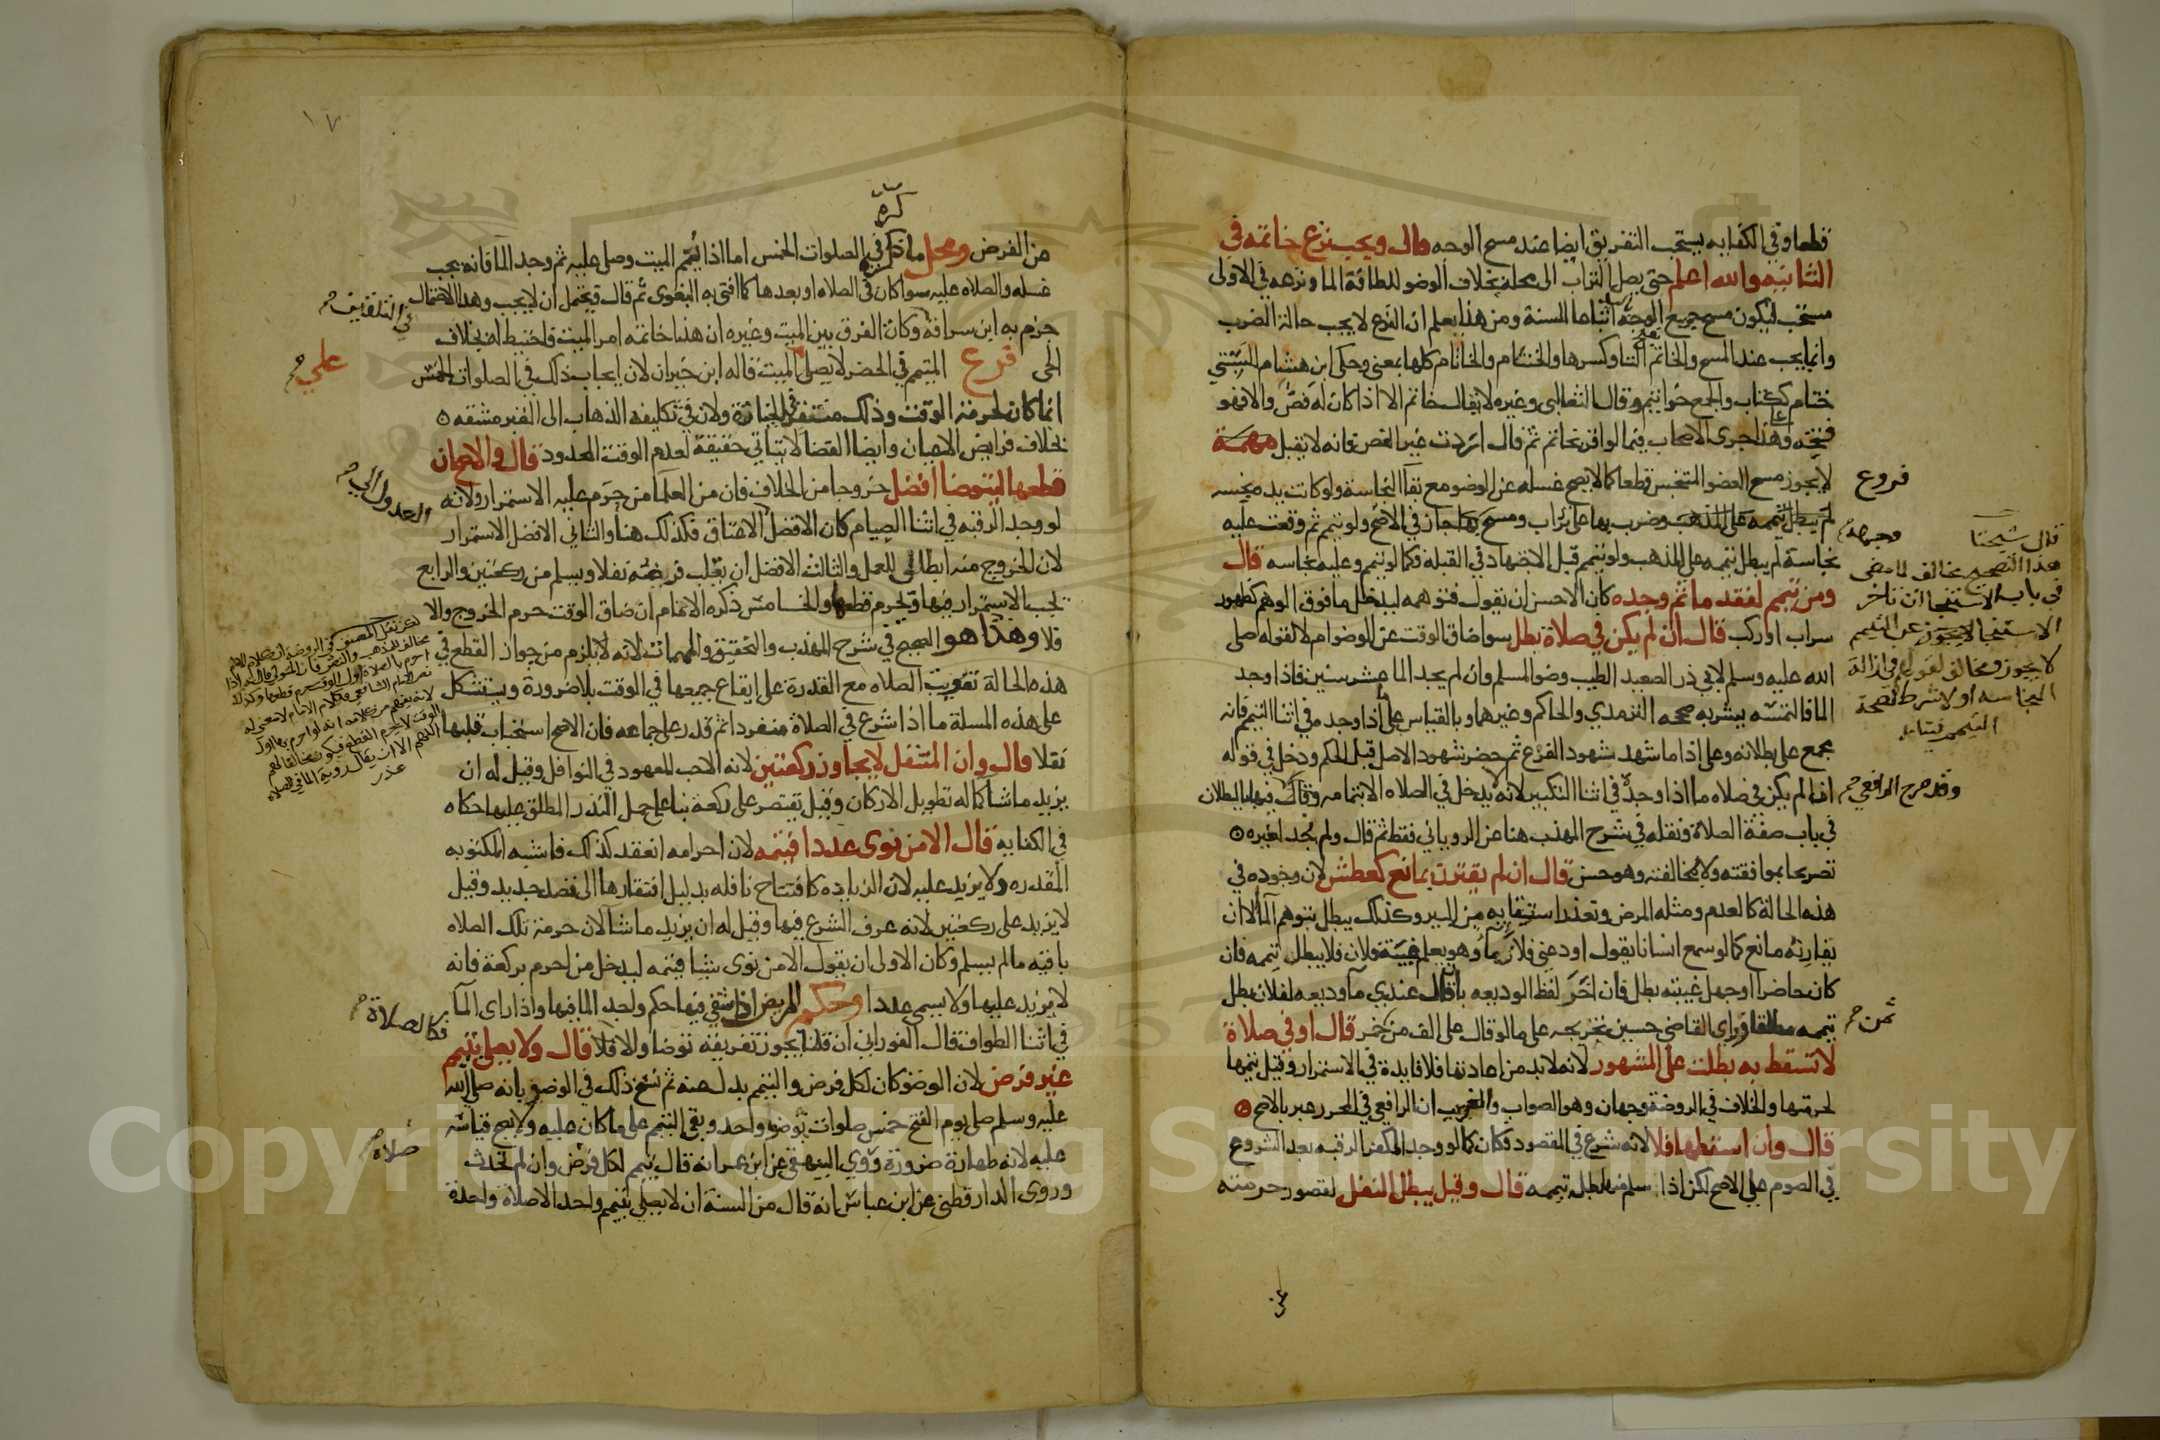 قطعا وفي الكفايه يستحب التفريق ايضا عند مسح الوجه قال ويجب نزع خاتمه في
الثانيه والله اعلم حتى يصل التراب الى محله بخلاف الوضو للطافة الما ونزعه في الاولى
مستحب ليكون مسح جميع الوجه اتباعا للسنة ومن هذا يعلم ان النزع لا يجب حالة الضرب
وانما يجب عند المسح والخاتم بفتح التا وكسرها والخيتام والخاتام كلها بمعنى وحكى ابن هشام السبتي
ختام ككتاب والجمع خواتيم وقال الثعالبي وغيره لا يقال خاتم الا اذا كان له فص والا فهو
فتخه وهذا جرى الاصحاب فيما لو اقر بخاتم ثم قال اردت غير الفص فانه لا يقبل مهمة
فروع
لا يجوز مسح العضو المتنجس قطعا كما لا يصح غسله عن الوضو مع بقآ النجاسة ولو كانت يده نجسه
لم يبطل تيممه على المذهب وضرب بها على تراب ومسح بها جاز في الاصح ولو تيمم ثم وقعت عليه
نجاسة لم يبطل تيممه على المذهب ولو تيمم قبل الاجتهاد في القبله فكما لو تيمم وعليه نجاسه قال
ومن تيمم لفقد ما ثم وجده كان الاحسن ان يقول فتوهمه ليدخل ما فوق الوهم كظهور
سراب او ركب قال ان لم يكن في صلاة بطل سوا ضاق الوقت عن الوضو ام لا لقوله صلى
الله عليه وسلم لابي ذر الصعيد الطيب وضو المسلم وان لم يجد الما عشر سنين فاذا وجد
الما فالتمسه بيشره صححه الترمذي والحاكم وغيرهما وبالقياس على اذا وجده في اثنا التيمم فانه
مجمع على بطلانه وعلى اذا ما شهد شهود الفرع ثم حضر شهود الاصل قبل الحكم ودخل في قوله
اذا لم يكن في صلاه ما اذا وجده في اثنا التكبير لانه لا يدخل في الصلاه الا بتمامه وقال فيها بالبطلان
وقد صرح الرافعي
في باب صفة الصلاة ونقله في شرح المهذب هنا عن الروياني فقط ثم قال ولم نجد لغيره
تصريحا بموافقته ولا بمخالفته وهو حسن قال ان لم يقترن بمانع كعطش لان وجوده في
هذه الحالة كالعدم ومثله المرض وتعذر استقايه من البير وكذلك يبطل بتوهم المآ الا ان
يقارنه مانع كما لو سمع انسانا يقول اودعني فلان ما وهو يعلم غيبة فلان فلا يبطل تيممه فان
كان حاضرا او جهل غيبته بطل فان اخر لفظ الوديعه بان قال عندي ما وديعه لفلان بطل
تيممه مطلقا وراى القاضي حسين تخريجه على ما لو قال على الف من خمر قال او في صلاة
ثمن
لا تسقط به بطلت على المشهور لانه لا بد من اعادتها فلا فايدة في الاستمرار وقيل يتمها
لحرمتها والخلاف في الروضة وجهان وهو الصواب والغريب ان الرافعي في المحرر عبر بالاصح
قال وان اسقطها فلا لانه شرع في المقصود فكان كما لو وجد المكفر الرقبه بعد الشروع
في الصوم على الاصح لكن اذا سلم منها بطل تيممه قال وقيل يبطل النفل لقصور حرمته
قال شيخنا
هذا التصحيح مخالف لما مضى
في باب الاستنجا ان تاخر
الاستنجا عن التيمم
لا يجوز ومخالف لقولهم في ازالة
النجاسه او لا شرط لصحة
التيمم
عن
١٧
من الفرض ومحل ما ذكره في الصلوات الخمس اما اذا يمم الميت وصلى عليه ثم وجد الما فانه يجب
غسله والصلاه عليه سوا كان في الصلاه او بعدها كما افتى به البغوى ثم قال ويحتمل ان لا يجب وهذا الاحتمال
في التلقين
جزم به ابن سراقة وكان الفرق بين الميت وغيره ان هذا خاتمه امر الميت فاحتيط له بخلاف
الحى فرع المتيمم في الحضر لا يصلى الميت قاله ابن خيران لان ايجاب ذلك في الصلوات الخمس
على
انما كان لحرمة الوقت وذلك منتف في الجنازة ولان في تكليفه الذهاب الى القبر مشقه
بخلاف فرايض الاعيان وايضا القضا لا يتاتي حقيقة لعدم الوقت المحدود قال والاصح ان
قطعها ليتوضا افضل خروجا من الخلاف فان من العلمآ من حرم عليه الاستمرار ولانه
العدول الى
لو وجد الرقبه في اثنا الصيام كان الافضل الاعتاق فكذلك هنا والثاني الافضل الاستمرار
لان الخروج منه ابطال للعمل والثالث الافضل ان يقلب فرضه نفلا ويسلم من ركعتين والرابع
يجب الاستمرار فيها ويحرم قطعها والخامس ذكره الامام ان ضاق الوقت حرم الخروج والا
فلا وهذا هو الصحيح في شرح المهذب والتحقيق والمهمات لانه لا يلزم من جواز القطع في
هذه الحالة تفويت الصلاه مع القدرة على ايقاع جميعها في الوقت بلا ضرورة ويستشكل
على هذه المسلة ما اذا شرع في الصلاة منفردا ثم قدر على جماعه فان الاصح استحباب قلبها
نفلا قال وان المتنفل لا يجاوز ركعتين لانه الاحب المعهود في النوافل وقيل له ان
يزيد ما شآ كما له تطويل الاركان وقيل يقتصر على ركعة بنا على حمل النذر المطلق عليها حكاه
في الكفايه قال الا من نوى عددا فيتمه لان احرامه انعقد كذلك فاشبه المكتوبه
المقدره ولا يزيد عليه لان الزياده كافتتاح نافله بدليل افتقارها الى قصد جديد وقيل
لا يزيد على ركعتين لانه عرف الشرع فيها وقيل له ان يزيد ما شا لان حرمة تلك الصلاه
باقيه ما لم يسلم وكان الاولى ان يقول الا من نوى شيا فيتمه ليدخل من احرم بركعة فانه
لا يزيد عليها ولا يسمى عددا وحكم المريض اذا شفي فيها حكم واجد الما فيها واذا راى المآ
في اثنا الطواف قال الفوراني ان قلنا يجوز تفريقه توضا والا فلا قال ولا يصلى بتيمم
فكالصلاة
غير فرض لان الوضو كان لكل فرض والتيمم بدل عنه ثم نسخ ذلك في الوضو بانه صلى الله
عليه وسلم صلى يوم الفتح خمس صلوات بوضو واحد وبقى التيمم على ما كان عليه ولا يصح قياسه
عليه لانه طهارة ضرورة وروى البيهقي عن ابن عمر انه قال يتيمم لكل فرض وان لم يحدث
صلاة
وروى الدارقطني عن ابن عباس انه قال من السنة ان لا يصلي بتيمم واحد الا صلاة واحدة
Copyright © King Saud University
1957